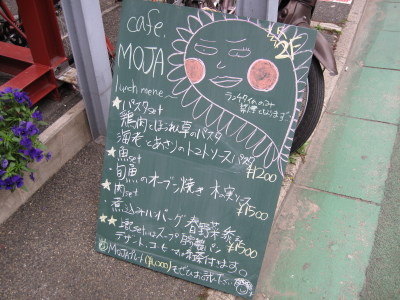 cafe.
MOJA
lunch menu
ランチタイムのみ
禁煙となります
★パスタset
・鶏肉とほうれん草のパスタ
・海老とあさりのトマトソースパスタ
¥1200
★魚set
・旬魚のオーブン焼き 木の実ソース
¥1500
★肉set
・煮込みハンバーグ 春野菜添え
¥1500
★★ setにはスープ パン
デザート、コーヒー 付きます。
MOJAプレート(¥1,000)もぜひお試し下さい